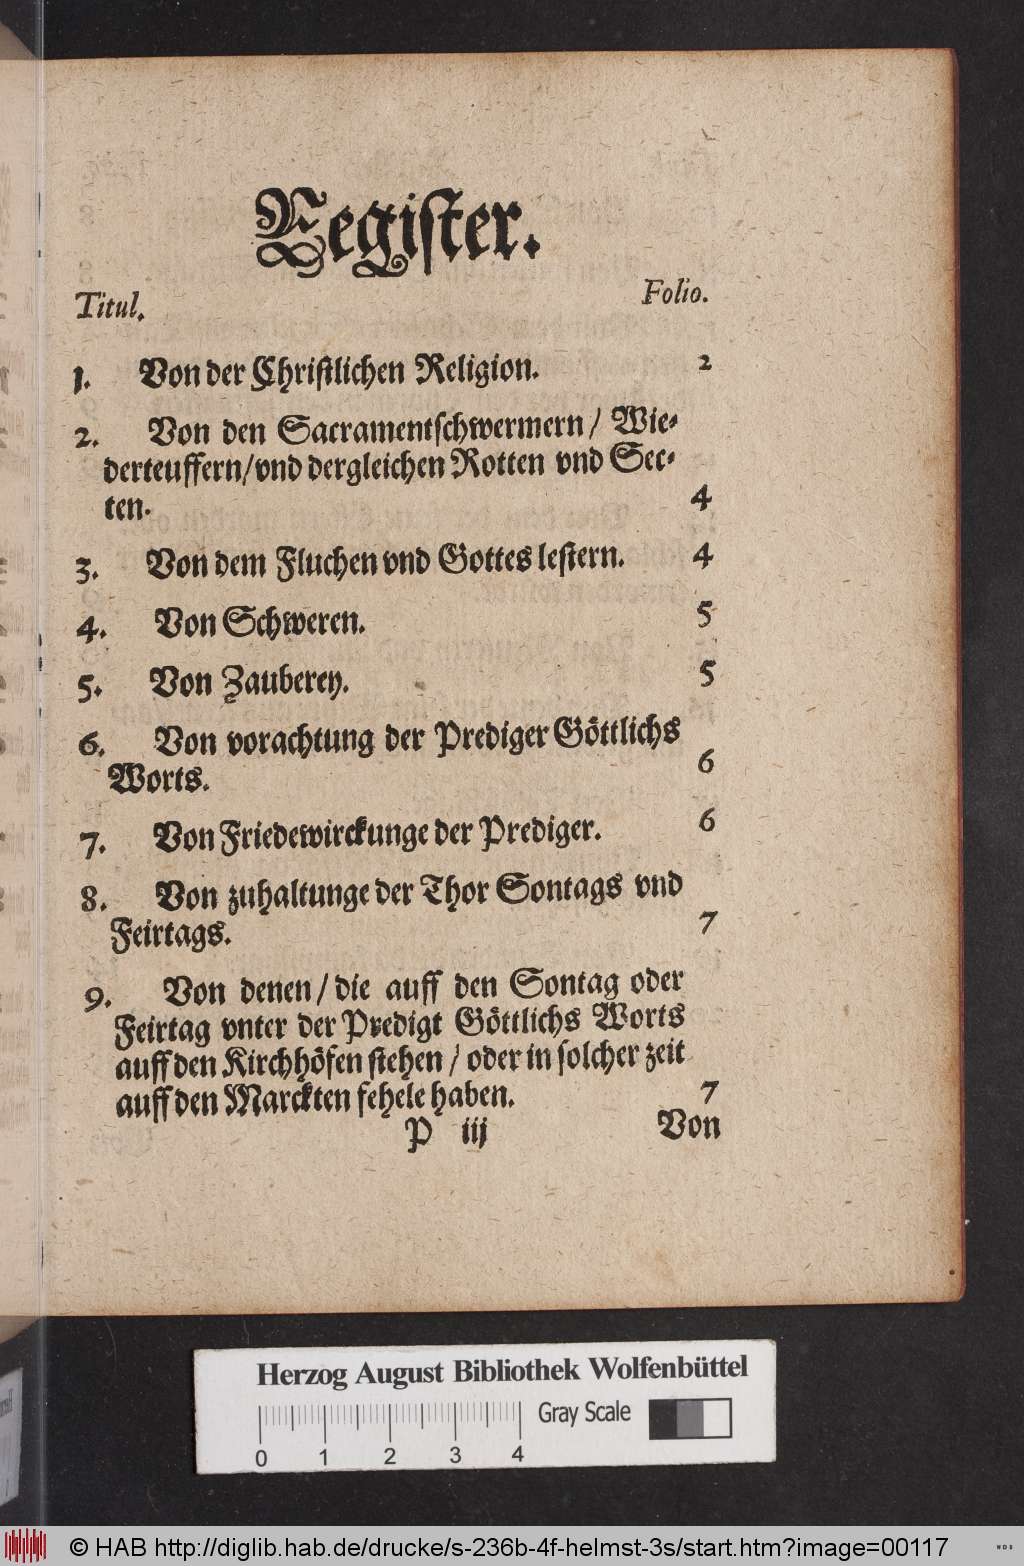 Register.
Titul. Folio.
1. Von der Christlichen Religion. 2
2. Von den Sacramentschwermern / Wie-
derteuffern/vnd dergleichen Rotten vnd Sec-
ten. 4
3. Von dem Fluchen vnd Gottes lestern. 4
4. Von Schweren. 5
5. Von Zauberey. 5
6. Von vorachtung der Prediger Göttlichs
Worts. 6
7. Von Friedewirckunge der Prediger. 6
8. Von zuhaltunge der Thor Sontags vnd
Feirtags. 7
9. Von denen / die auff den Sontag oder
Feirtag vnter der Predigt Göttlichs Worts
auff den Kirchhöfen stehen / oder in solcher zeit
auff den Marckten fehele haben. 7
P iij Von
Herzog August Bibliothek Wolfenbüttel
Gray Scale
0 1 2 3 4
© HAB http://diglib.hab.de/drucke/s-236b-4f-helmst-3s/start.htm?image=00117